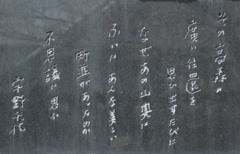 その高森の
廣い住還を
思ひ出すたびに
なぜあの山奥に
ふいに あんな美しい
町並があったか
不思議に思ふ
宇野千代